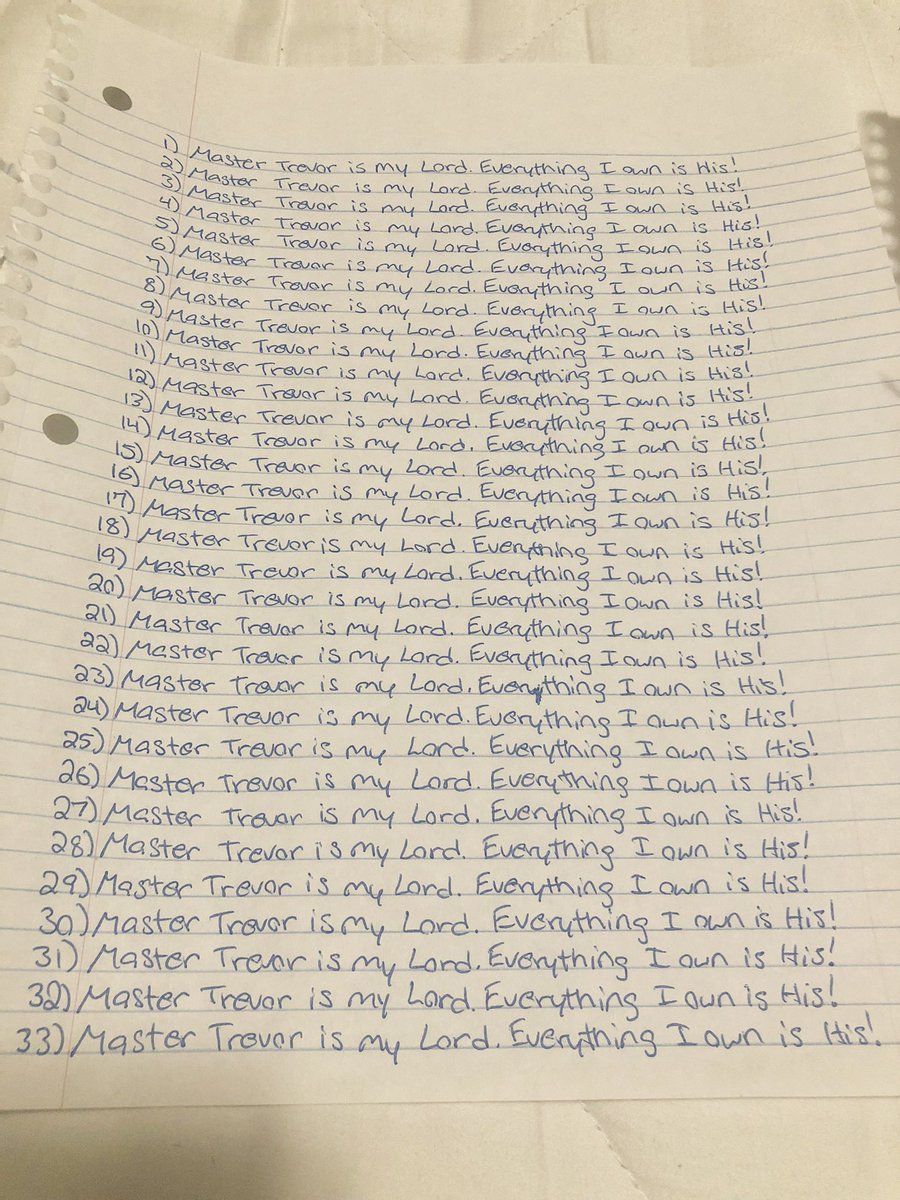 1) Master Trevor is my Lord. Everything I own is His!
2) Master Trevor is my Lord. Everything I own is His!
3) Master Trevor is my Lord. Everything I own is His!
4) Master Trevor is my Lord. Everything I own is His!
5) Master Trevor is my Lord. Everything I own is His!
6) Master Trevor is my Lord. Everything I own is His!
7) Master Trevor is my Lord. Everything I own is His!
8) Master Trevor is my Lord. Everything I own is His!
9) Master Trevor is my Lord. Everything I own is His!
10) Master Trevor is my Lord. Everything I own is His!
11) Master Trevor is my Lord. Everything I own is His!
12) Master Trevor is my Lord. Everything I own is His!
13) Master Trevor is my Lord. Everything I own is His!
14) Master Trevor is my Lord. Everything I own is His!
15) Master Trevor is my Lord. Everything I own is His!
16) Master Trevor is my Lord. Everything I own is His!
17) Master Trevor is my Lord. Everything I own is His!
18) Master Trevor is my Lord. Everything I own is His!
19) Master Trevor is my Lord. Everything I own is His!
20) Master Trevor is my Lord. Everything I own is His!
21) Master Trevor is my Lord. Everything I own is His!
22) Master Trevor is my Lord. Everything I own is His!
23) Master Trevor is my Lord. Everything I own is His!
24) Master Trevor is my Lord. Everything I own is His!
25) Master Trevor is my Lord. Everything I own is His!
26) Master Trevor is my Lord. Everything I own is His!
27) Master Trevor is my Lord. Everything I own is His!
28) Master Trevor is my Lord. Everything I own is His!
29) Master Trevor is my Lord. Everything I own is His!
30) Master Trevor is my Lord. Everything I own is His!
31) Master Trevor is my Lord. Everything I own is His!
32) Master Trevor is my Lord. Everything I own is His!
33) Master Trevor is my Lord. Everything I own is His!